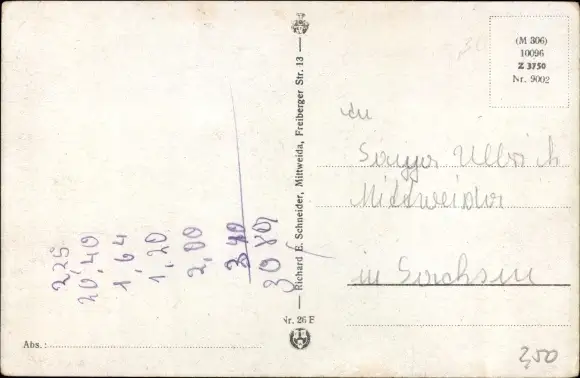 (M 306)
10096
Z 3750
Nr. 9002
Richard E. Schneider, Mittweida, Freiberger Str. 13
Nr. 26 E
An
Ullrich
Mittweida
in Sachsen
2,25
20,40
1,64
1,20
2,00
3 40
Abs.:
2,50